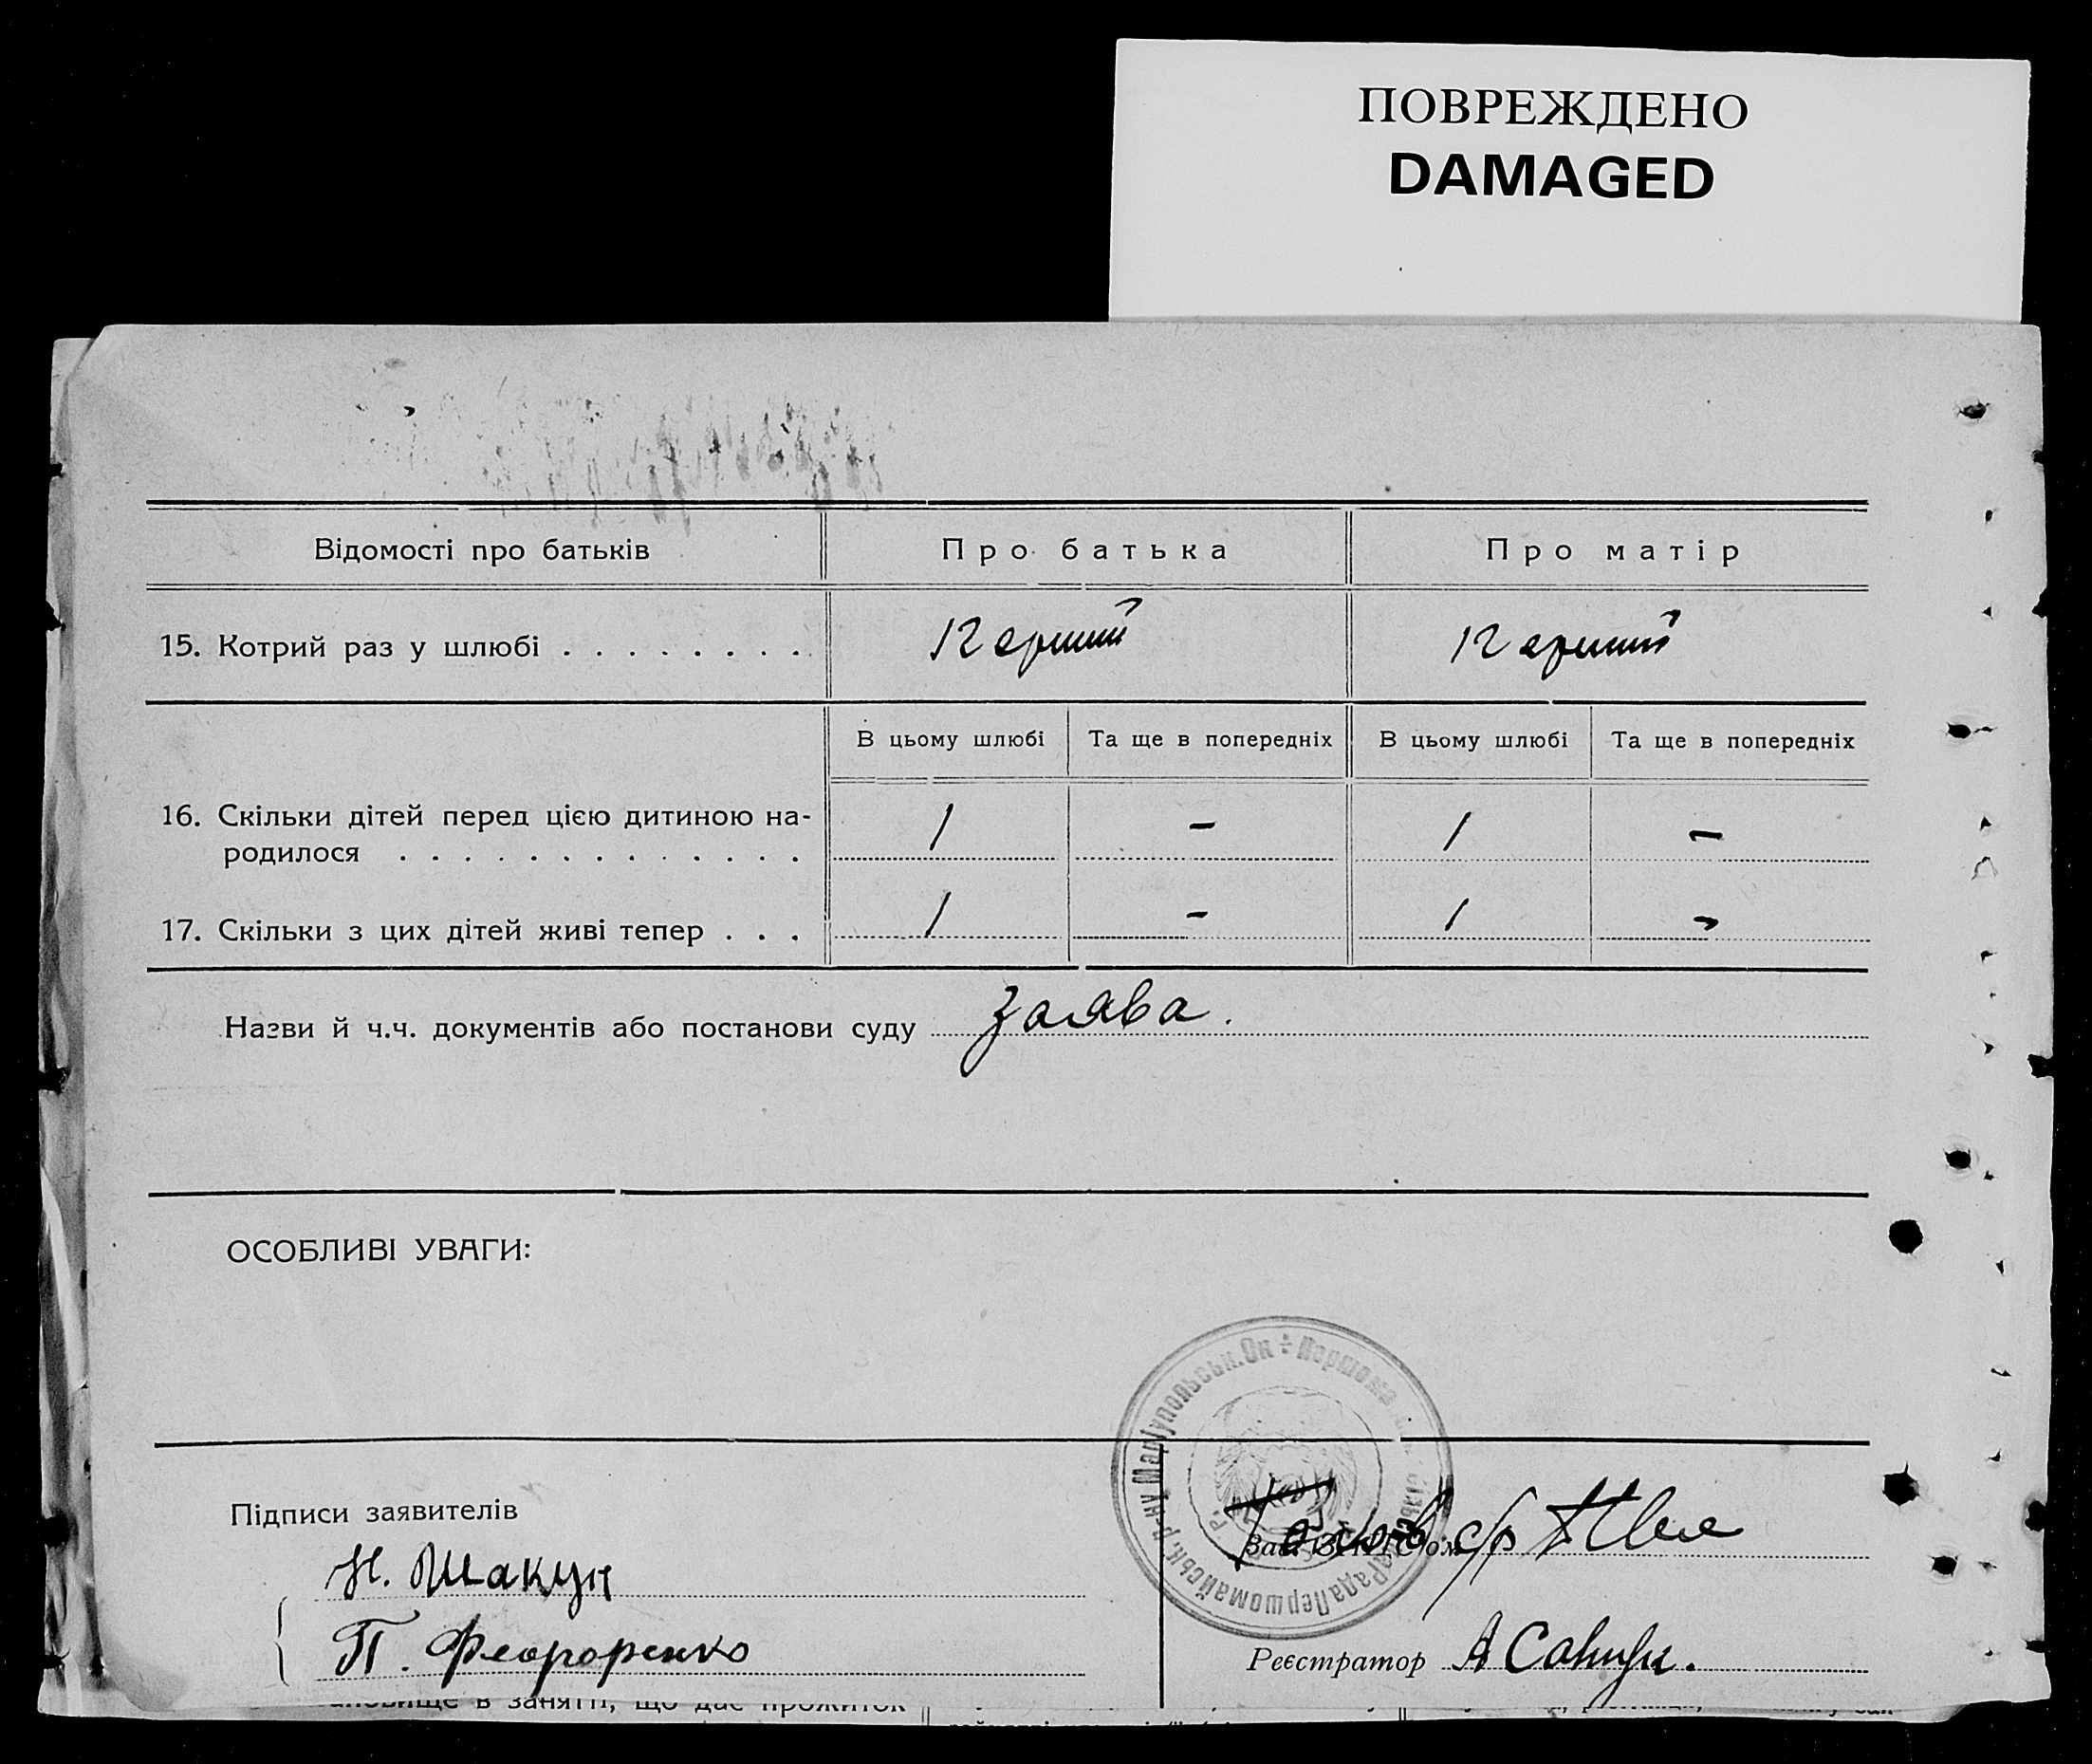 ПОВРЕЖДЕНО
DAMAGED
Відомості про батьків Про батька Про матір
15. Котрий раз у шлюбі . . . . . . . . Перший Перший
В цьому шлюбі Та ще в попередніх В цьому шлюбі Та ще в попередніх
16. Скільки дітей перед цією дитиною на-
родилося . . . . . . . . . . . . . 1 - 1 -
17. Скільки з цих дітей живі тепер . . . 1 - 1 -
Назви й ч.ч. документів або постанови суду заява.
ОСОБЛИВІ УВАГИ:
Першома Рада Першомайськ. р-ну Маріупольськ. Ок
Підписи заявителів
Н. Шакун
П. Феороренко
Зав. ЗАГС'ом
Голова с/р
Реєстратор А
ановище в занятті, що дає прожиток